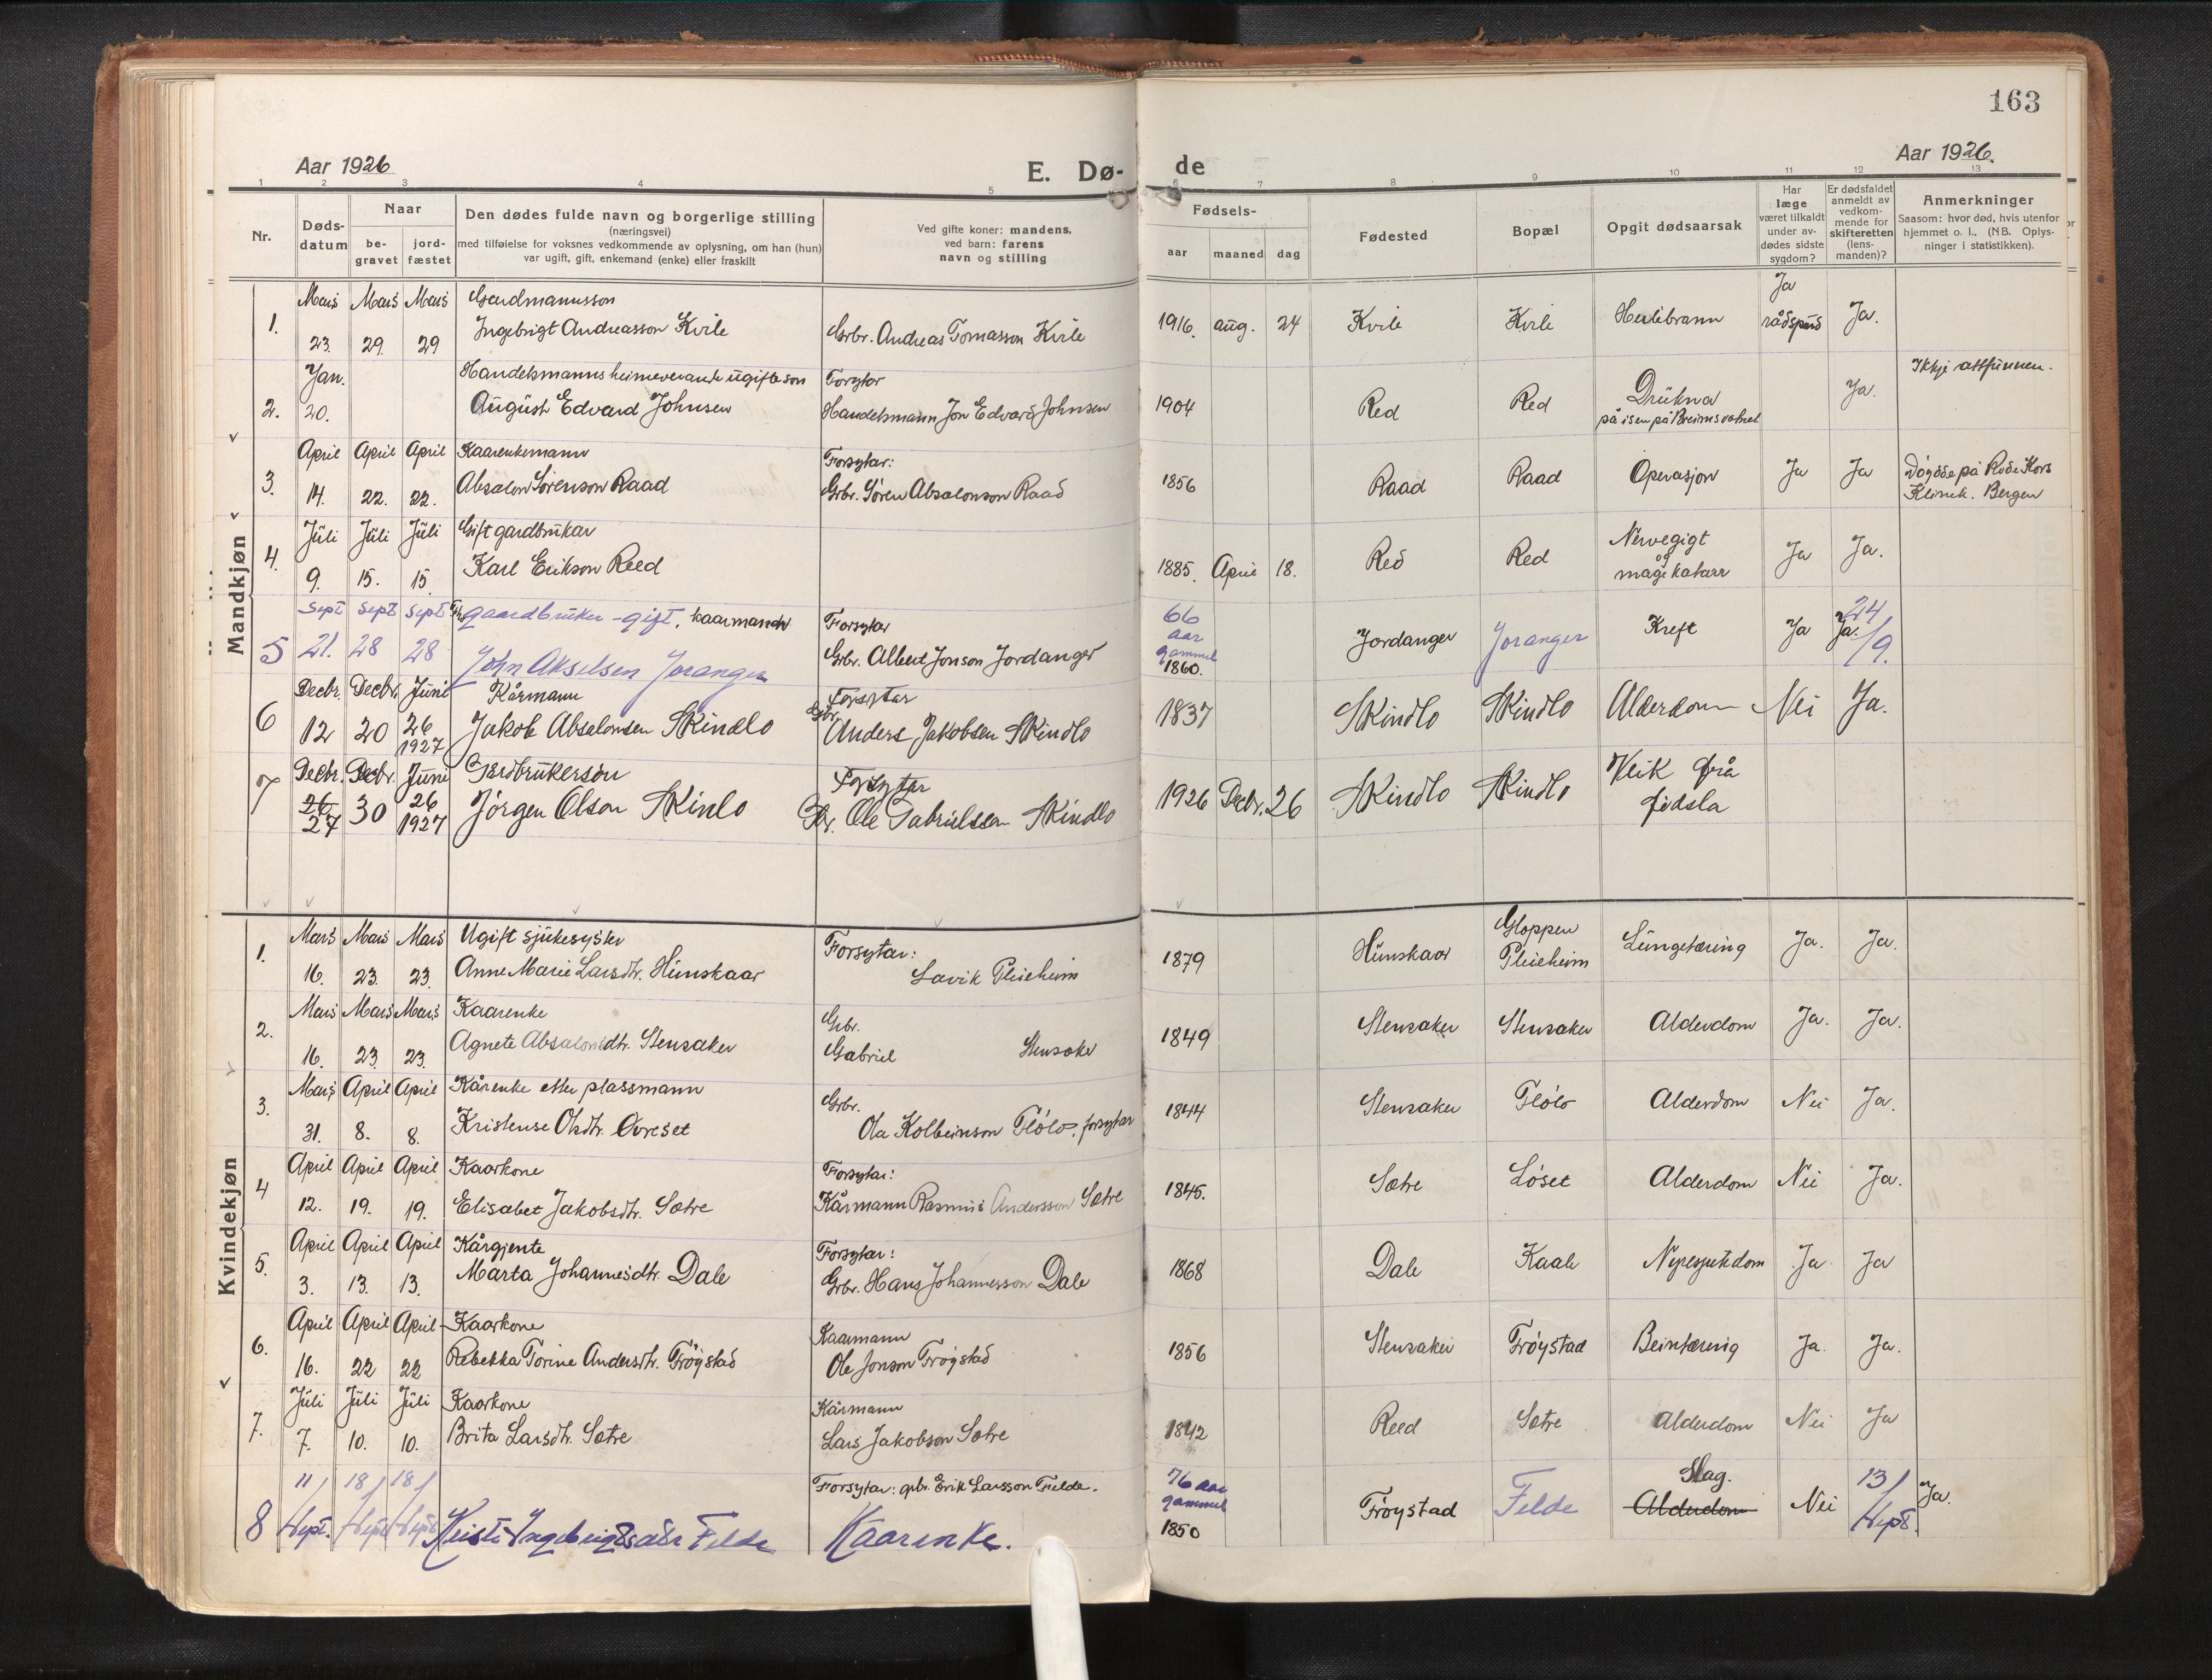 163
Aar 1926
E. Dø-
de
Aar 1926.
1 2 3 4 5 6 7 8 9 10 11 12 13
Nr.
Døds-
datum
Naar
be-
gravet
jord-
fæstet
Den dødes fulde navn og borgerlige stilling
(næringsvei)
med tilføielse for voksnes vedkommende av oplysning, om han (hun)
var ugift, gift, enkemand (enke) eller fraskilt
Ved gifte koner: mandens,
ved barn: farens
navn og stilling
Fødsels-
aar maaned dag
Fødested
Bopæl
Opgit dødsaarsak
Har
læge
været tilkaldt
under av-
dødes sidste
sygdom?
Er dødsfaldet
anmeldt av
vedkom-
mende for
skifteretten
(lens-
manden)?
Anmerkninger
Saasom: hvor død, hvis utenfor
hjemmet o. l., (NB. Oplys-
ninger i statistikken).
Mandkjøn
Mars Mars Mars Gardmannsson Ja
1. 23. 29. 29 Ingebrigt Andreasson Kvile Grbr. Andreas Tomasson Kvile 1916. aug. 24 Kvile Kvile Heilebrann rådspurd Ja.
Jan. Handelsmanns heimeverande ugifte son Forsytar Ikkje attfunnen.
2. 20. August Edvard Johnsen Handelsmann Jon Edvard Johnsen 1904 Red Red Drukna Ja.
på isen på Breimsvatnet
April April April Kaarenkemann Forsytar:
3. 14. 22. 22. Absalon Sørenson Raad Grbr. Søren Absalonson Raad 1856 Raad Raad Operasjon Ja Ja Døydde på Røde Kors
Klinik. Bergen
Juli Juli Juli Gift gardbrukar Nervegigt
4. 9. 15. 15. Karl Erikson Reed 1885. April 18. Red Red og Ja Ja.
magekatarr
Sept Sept Sept gaardbruker - gift, kaarmann Forsytar 66 24
5 21. 28 28 John Akselsen Joranger Grbr. Albert Jonson Jordanger aar Jordanger Joranger Kreft Ja Ja. /9.
gammel
1860.
Decbr. Decbr. Juni Kårmann Forsytar
6 12 20 26 Jakob Absalonsen Skindlo Gbr. Anders Jakobsen Skindlo 1837 Skindlo Skindlo Alderdom Nei Ja.
1927
Decbr. Decbr. Juni Gardbrukerson Forsytar Veik frå
7 26/27 30 26 Jørgen Olson Skinlo Gbr. Ole Gabrielssen Skindlo 1926 Decbr. 26 Skindlo Skindlo fødsla
1927
Kvindekjøn
Mars Mars Mars Ugift sjukesyster Forsytar: Gloppen
1. 16. 23. 23. Anne Marie Larsdtr. Hunskaar Lavik Pleieheim 1879 Hunskaar Pleieheim Lungetæring Ja. Ja.
Mars Mars Mars Kaarenke Grbr.
2. 16. 23 23. Agnete Absalonsdtr. Stensaker Gabriel Stensaker 1849 Stensaker Stensaker Alderdom Ja. Ja.
Mars April April Kårenke etter plassmann Grbr.
3. 31. 8. 8. Kristense Olsdtr. Øvreset Ola Kolbeinson Flölo, forsytar 1844 Stensaker Flölo Alderdom Nei Ja.
April April April Kaarkone Forsytar:
4 12. 19. 19. Elisabet Jakobsdtr. Sætre Kårmann Rasmus Andersson Sætre 1845. Sætre Løset Alderdom Nei Ja.
April April April Kårgjente Forsytar:
5. 3. 13. 13. Marta Johannesdtr. Dale Grbr. Hans Johannesson Dale 1868 Dale Kaale Nyresjukdom Ja Ja
April April April Kaarkone Kaarmann
6. 16. 22 22 Rebekka Torine Andersdtr. Frøystad Ole Jonson Frøystad 1856 Stensaker Frøystad Beintæring Ja. Ja.
Juli Juli Juli Kaarkone Kårmann
7. 7. 10. 10. Brita Larsdtr. Sætre Lars Jakobson Sætre 1842 Reed Sætre Alderdom Nei Ja
11/ 18/ 18/ Forsytar: grbr. Erik Larsson Felde. 76 aar Slag. 13/
8 Sept. Sept. Sept. Kristi Ingebrigtsdtr Felde Kaarenke. gammel Frøystad Felde Alderdom Nei Sept. Ja.
1850